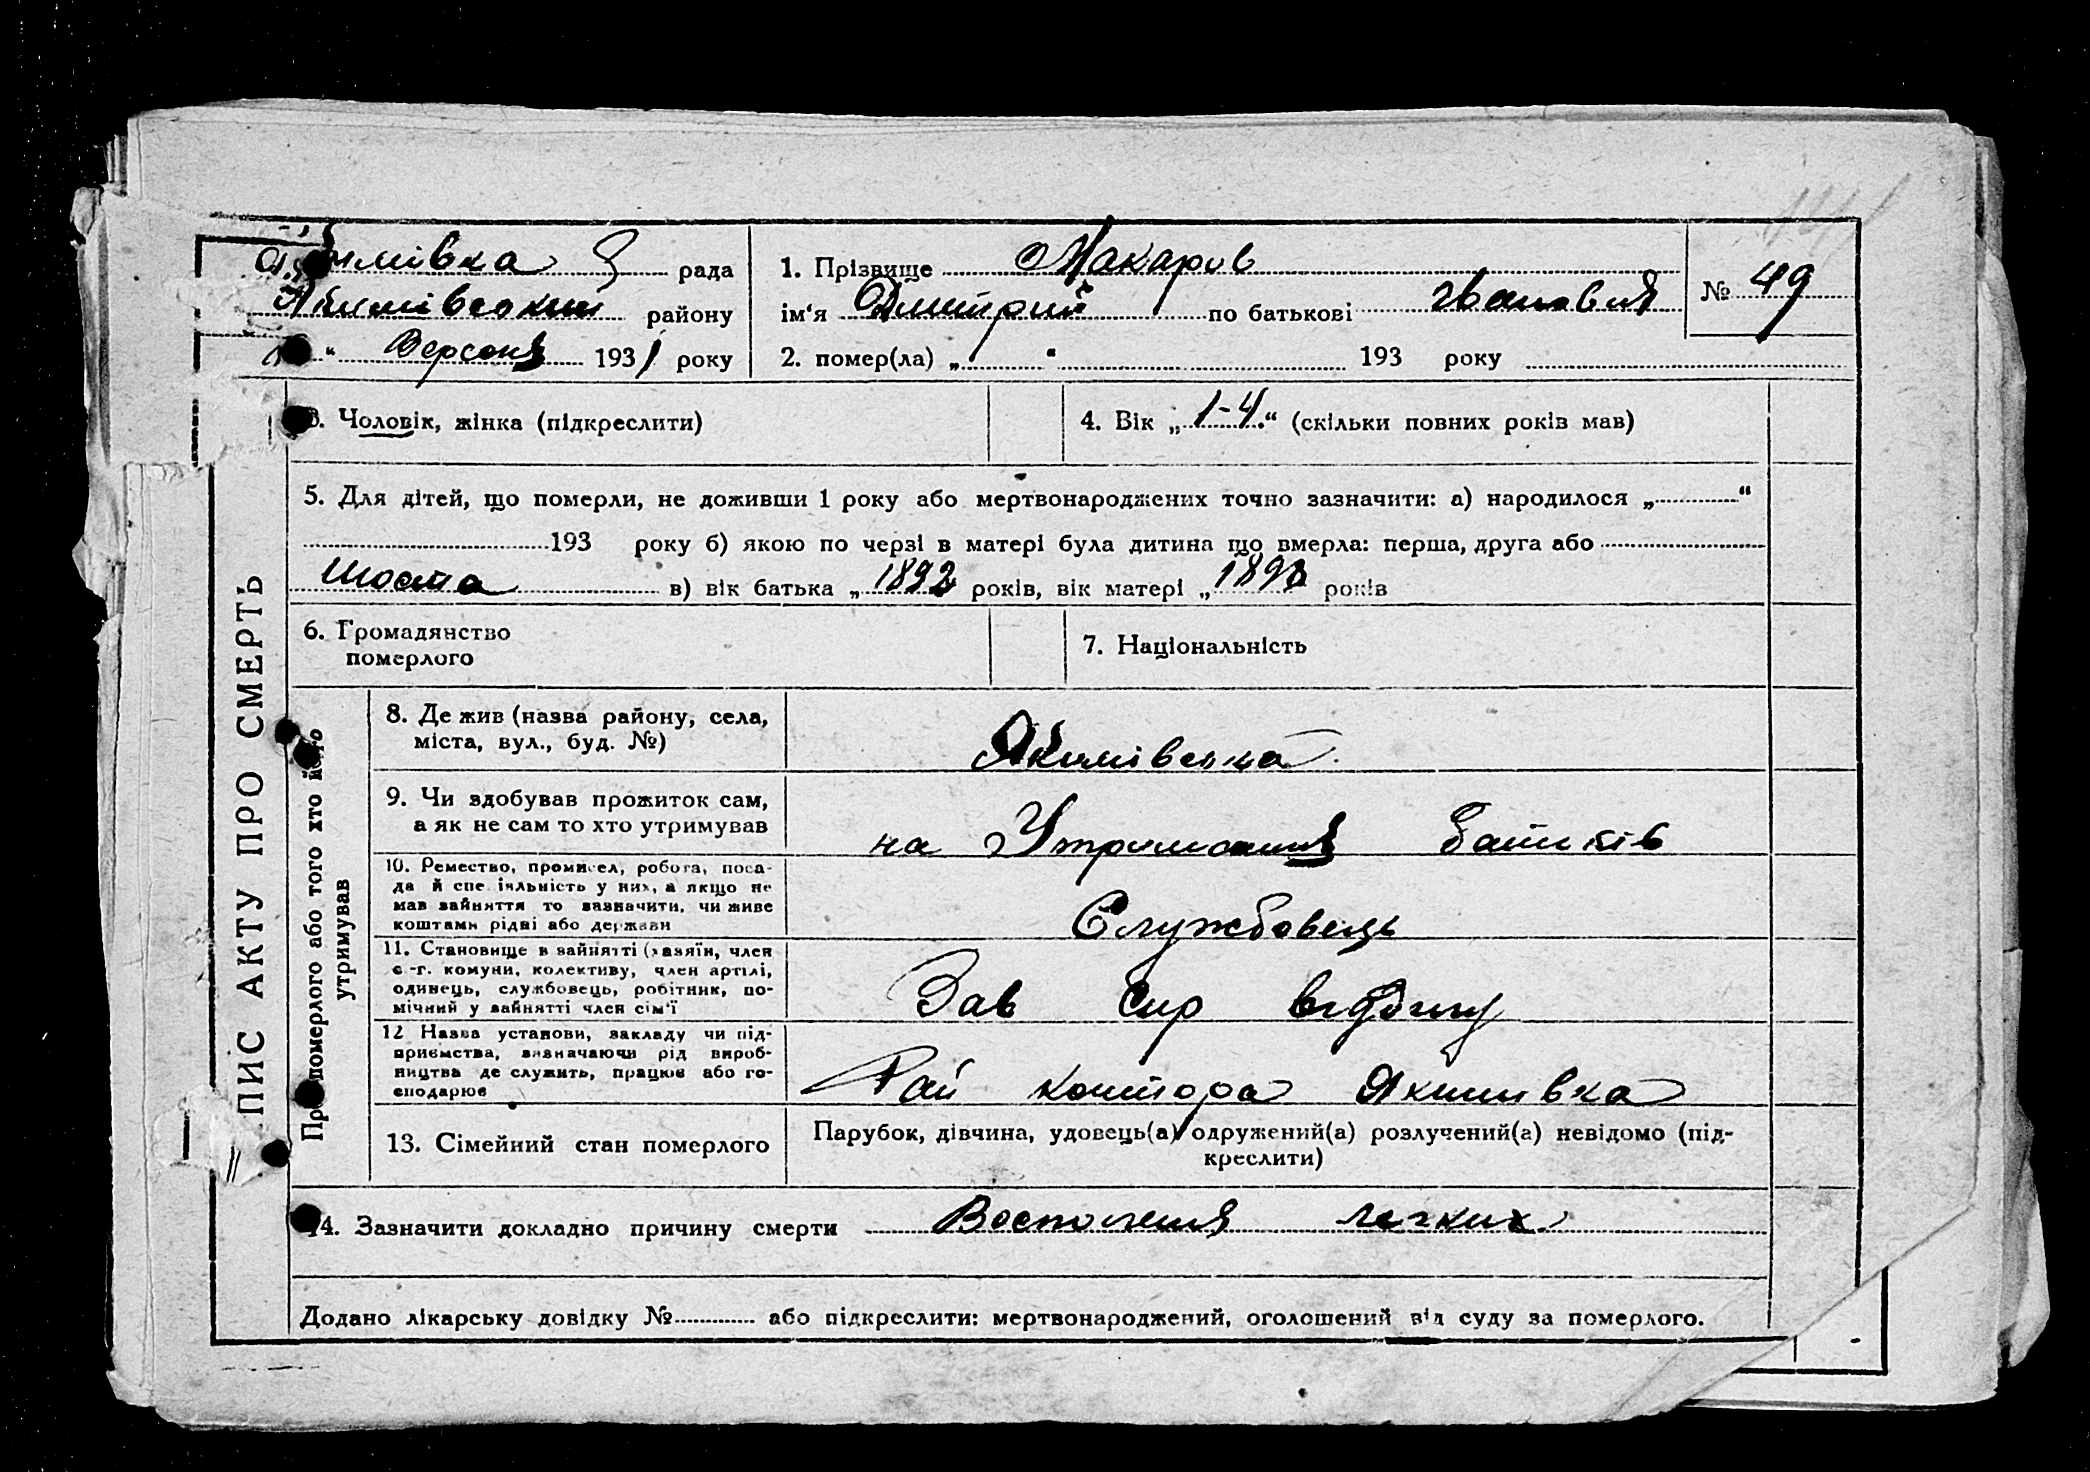 Якимівка рада
Якимівський району
" Вересня 1931 року
1. Прізвище Макаров
ім'я Дмитрий по батькові Іванович
№ 49
2. помер(ла) „ " 193 року
3. Чоловік, жінка (підкреслити)
4. Вік „1-4" (скільки повних років мав)
5. Для дітей, що померли, не доживши 1 року або мертвонароджених точно зазначити: а) народилося „ "
193 року б) якою по черзі в матері була дитина що вмерла: перша, друга або
шоста в) вік батька „1892 років, вік матері „1893 років
6. Громадянство
померлого
7. Національність
ПИС АКТУ ПРО СМЕРТЬ
Пр померлого або того хто його
утримував
8. Де жив (назва району, села,
міста, вул., буд. №)
Якимівська
9. Чи здобував прожиток сам,
а як не сам то хто утримував
на Утримання батьків
10. Ремество, промисел, робота, поса-
да й спеціяльність у них, а якщо не
мав зайняття то зазначити, чи живе
коштами рідні або держави
Службовець
11. Становище в зайнятті (хазяїн, член
с.-г. комуни, колективу, член артілі,
одинець, службовець, робітник, по-
мічний у зайнятті член сім'ї
Зав Сир відділу
12 Назва установи, закладу чи під-
приємства, визначаючи рід вироб-
ництва де служить, працює або го-
сподарює
Рай контора Якимівка
13. Сімейний стан померлого
Парубок, дівчина, удовець(а) одружений(а) розлучений(а) невідомо (під-
креслити)
14. Зазначити докладно причину смерти Воспоління легких
Додано лікарську довідку № або підкреслити: мертвонароджений, оголошений від суду за померлого.